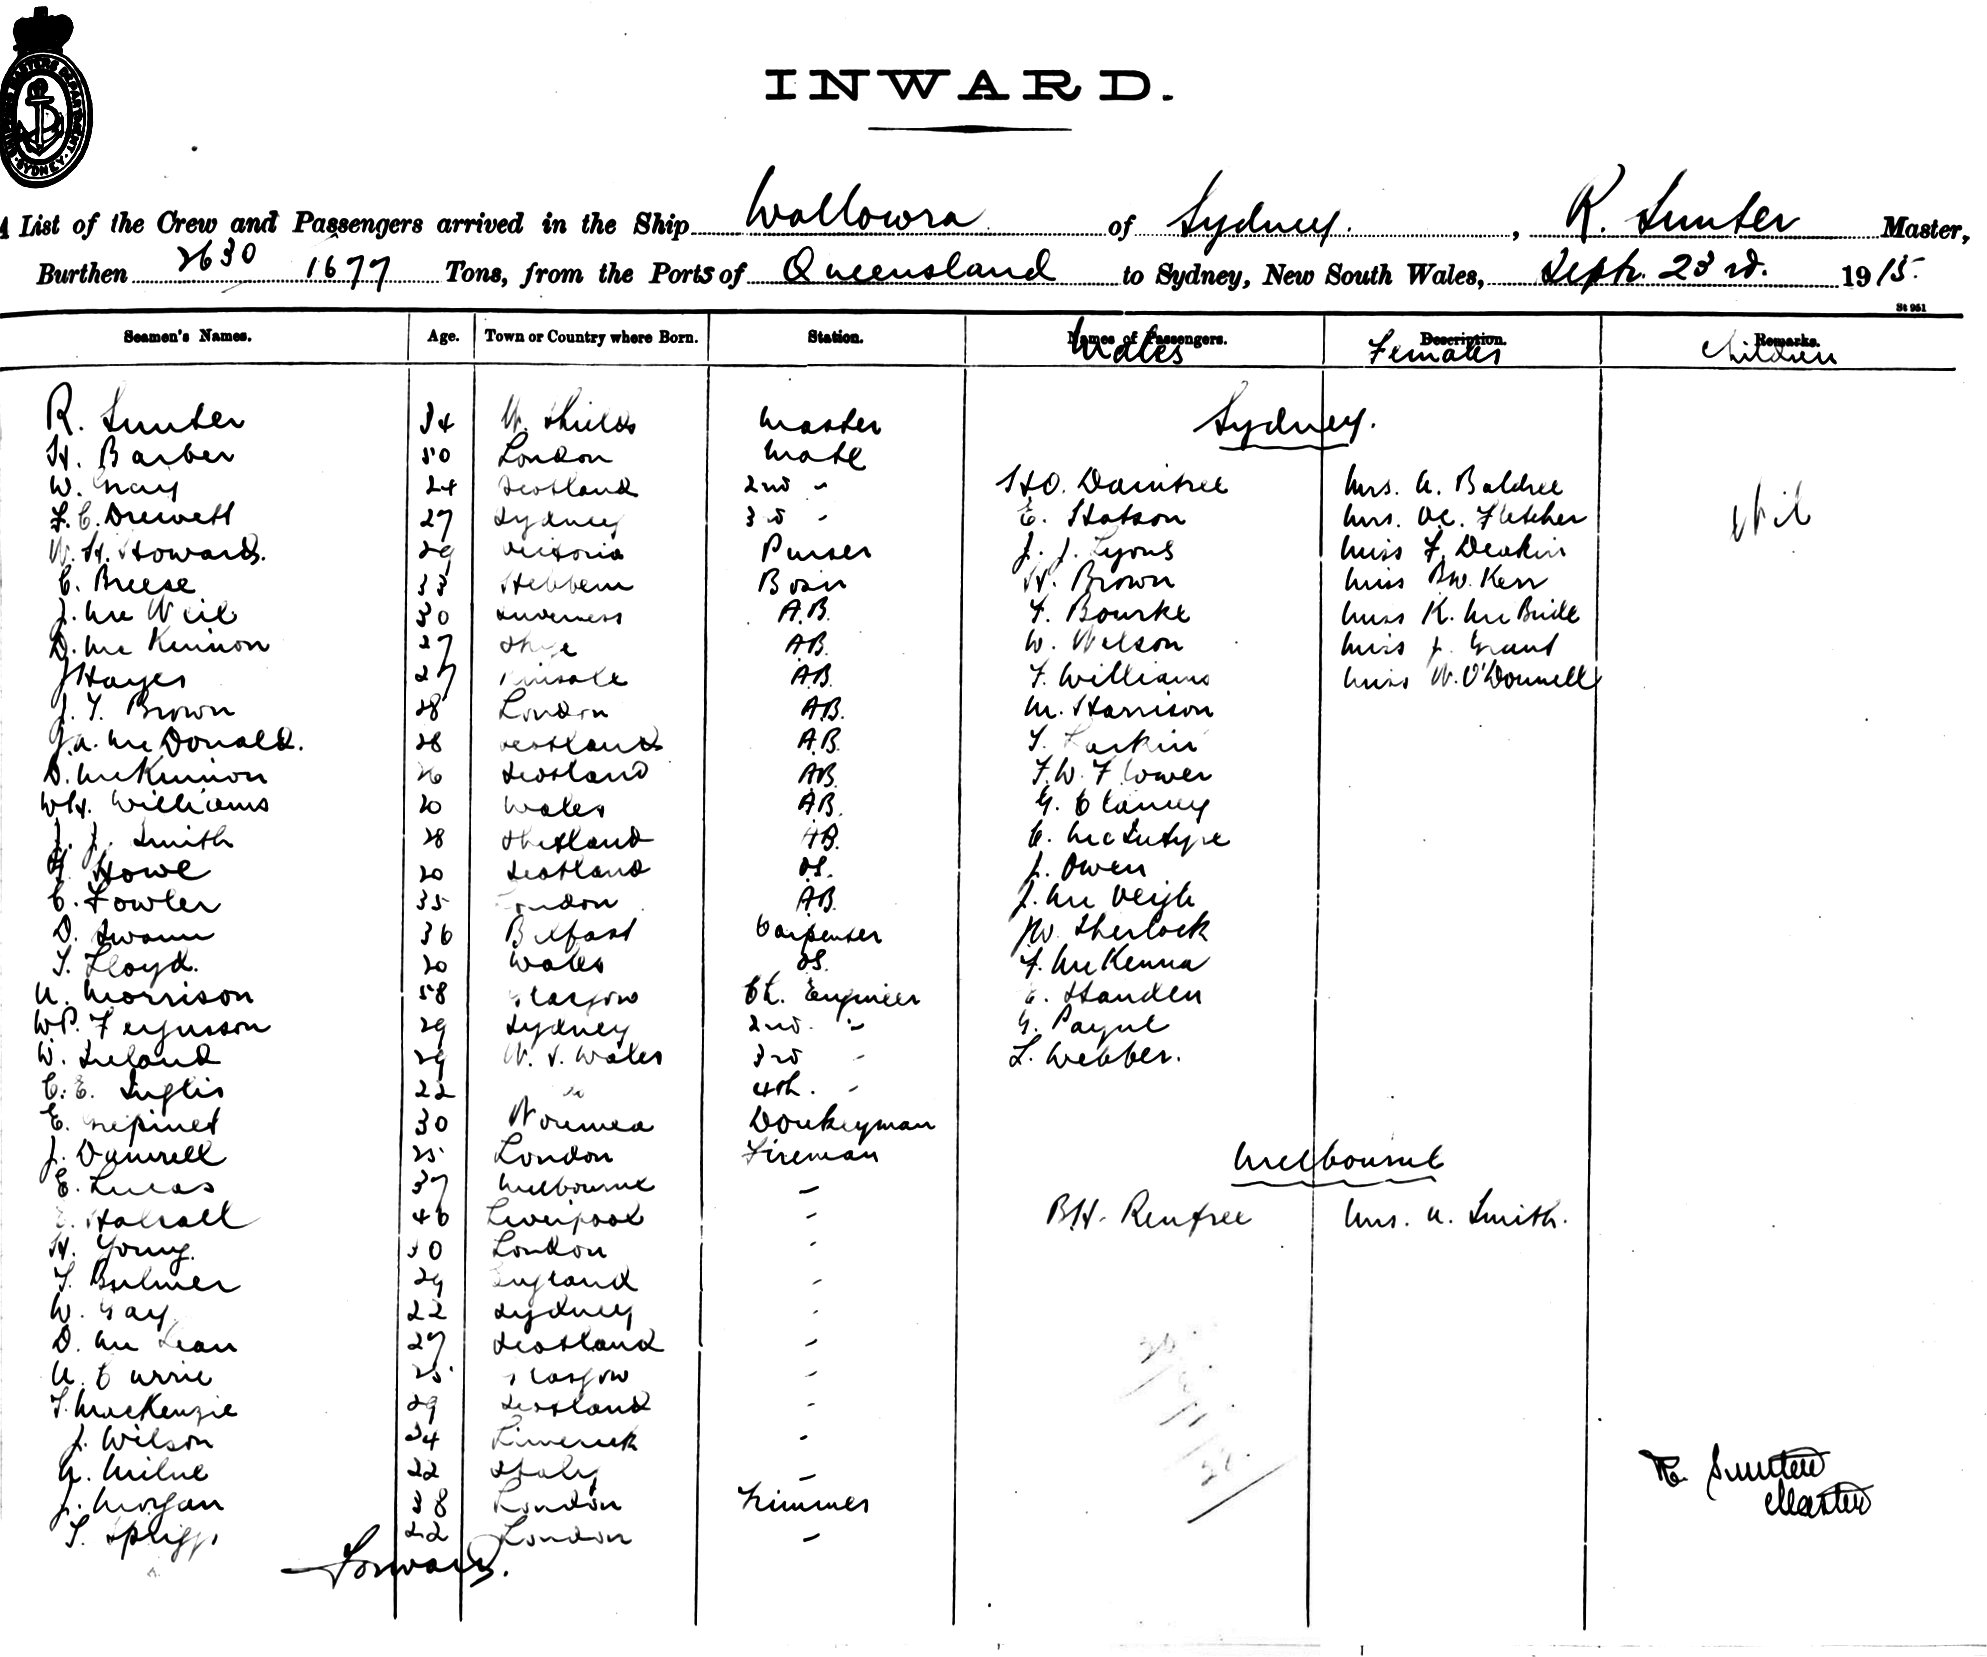 INWARD.
A List of the Crew and Passengers arrived in the Ship Wollowra of Sydney. , R. Sunter Master,
Burthen 2630 1677 Tons, from the Ports of Queensland to Sydney, New South Wales, Septr. 23rd. 1915.
St 951
Seamen's Names. Age. Town or Country where Born. Station. Names of Passengers. Males Description. Females Remarks. Children
R. Sunter 34 N. Shields Master Sydney.
H. Barber 50 London Mate
W. Gray 24 Scotland 2nd " Daintree Mrs. A. Baldree
F. C. Drewett 27 Sydney 3rd " E. Hatson Mrs. Fletcher Nil
W. H. Howard. 29 Victoria Purser J. J. Lyons Miss F. Deakin
C. Breese 33 Hebbern Bosn H. Brown Miss Kerr
J. McNeil 30 Inverness A.B. F. Bourke Miss K. McBride
D. McKinnon 27 Skye AB. W. Wilson Miss J. Grant
J Hayes 27 Kinsale A.B. F. Williams Miss N. O'Donnell
J. T. Brown 28 London A.B. M. Harrison
J. A. McDonald. 28 Scotland A.B. T. Larkin
D. McKinnon 26 Scotland AB. F. W. Flower
W. H. Williams 20 Wales A.B. G. Clancy
J. J. Smith 28 Shetland AB. C. McIntyre
Howe 20 Scotland OS. J. Owen
C. Fowler 35 London AB. J. McVeigh
D. Swann 36 Belfast Carpenter Sherlock
T. Lloyd. 20 Wales OS. F. McKenna
A. Morrison 58 Glasgow Ch. Engineer E. Standen
W. P. Fergusson 29 Sydney 2nd. " G. Payne
W. Ireland 29 N. S. Wales 3rd " L. Webber.
C. E. Inglis 22 " 4th. "
E. Grepinet 30 Noumea Donkeyman
J. Damrell 25 London Fireman Melbourne
E. Lucas 37 Melbourne "
Halsall 46 Liverpool " B. H. Renfree Mrs. A. Smith.
H. Young. 30 London "
T. Bulmer 29 England "
W. Gay 22 Sydney "
D. McLean 27 Scotland "
A. Currie 25 Glasgow "
T. MacKenzie 29 Scotland "
J. Wilson 24 Limerick "
A. Milne 22 Italy " R. Sunter
J. Morgan 38 London Trimmer Master
T. Spriggs 22 London "
Forward.